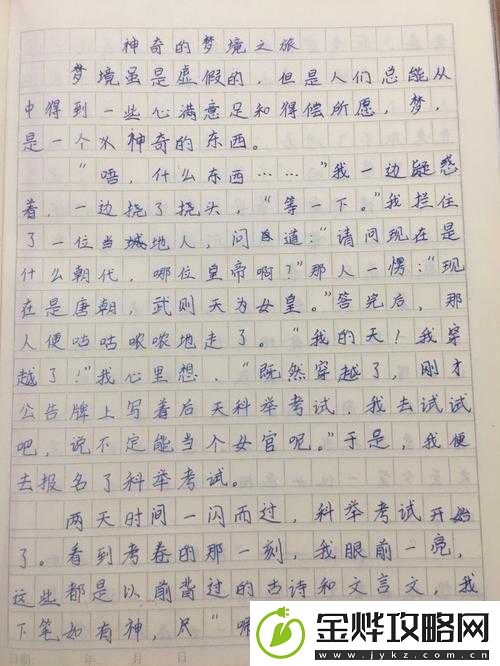 神奇的梦境之旅
梦境虽是虚假的，但是人们总能从
中得到一些心满意足和得偿所愿，梦，
是一个神奇的东西。
“唔，什么东西……”我一边疑惑
着，一边挠了挠头，“等一下。”我拦住
了一位当地人，问道：“请问现在是
什么朝代，哪位皇帝啊？”那人一愣：“现
在是唐朝，武则天为女皇。”答完后，那
人便咕咕哝哝地走了。“我的天！我穿
越了！”我心里想，“既然穿越了，刚才
公告牌上写着后天科举考试，我去试试
吧，说不定能当个女官呢。”于是，我便
去报名了科举考试。
两天时间一闪而过，科举考试开始
了。看到考卷的那一刻，我眼前一亮，
这些都是以前背过的古诗和文言文，我
下笔如有神，只“
日期 年 月 日
金烨攻略网
www.jykz.com.cn